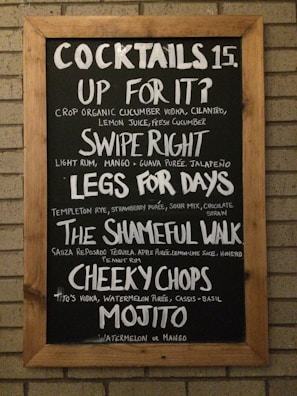 COCKTAILS 15.
UP FOR IT?
CROP ORGANIC CUCUMBER VODKA, CILANTRO,
LEMON JUICE, FRESH CUCUMBER
SWIPE RIGHT
LIGHT RUM, MANGO + GUAVA PURÉE, JALAPEÑO
LEGS FOR DAYS
TEMPLETON RYE, STRAWBERRY PURÉE, SOUR MIX, CHOCOLATE
STRAW
THE SHAMEFUL WALK
SAUZA REPOSADO TEQUILA, APPLE PURÉE, LEMON-LIME JUICE,
PEANUT RIM
CHEEKY CHOPS
TITO'S VODKA, WATERMELON PURÉE, CASSIS + BASIL
MOJITO
WATERMELON OR MANGO